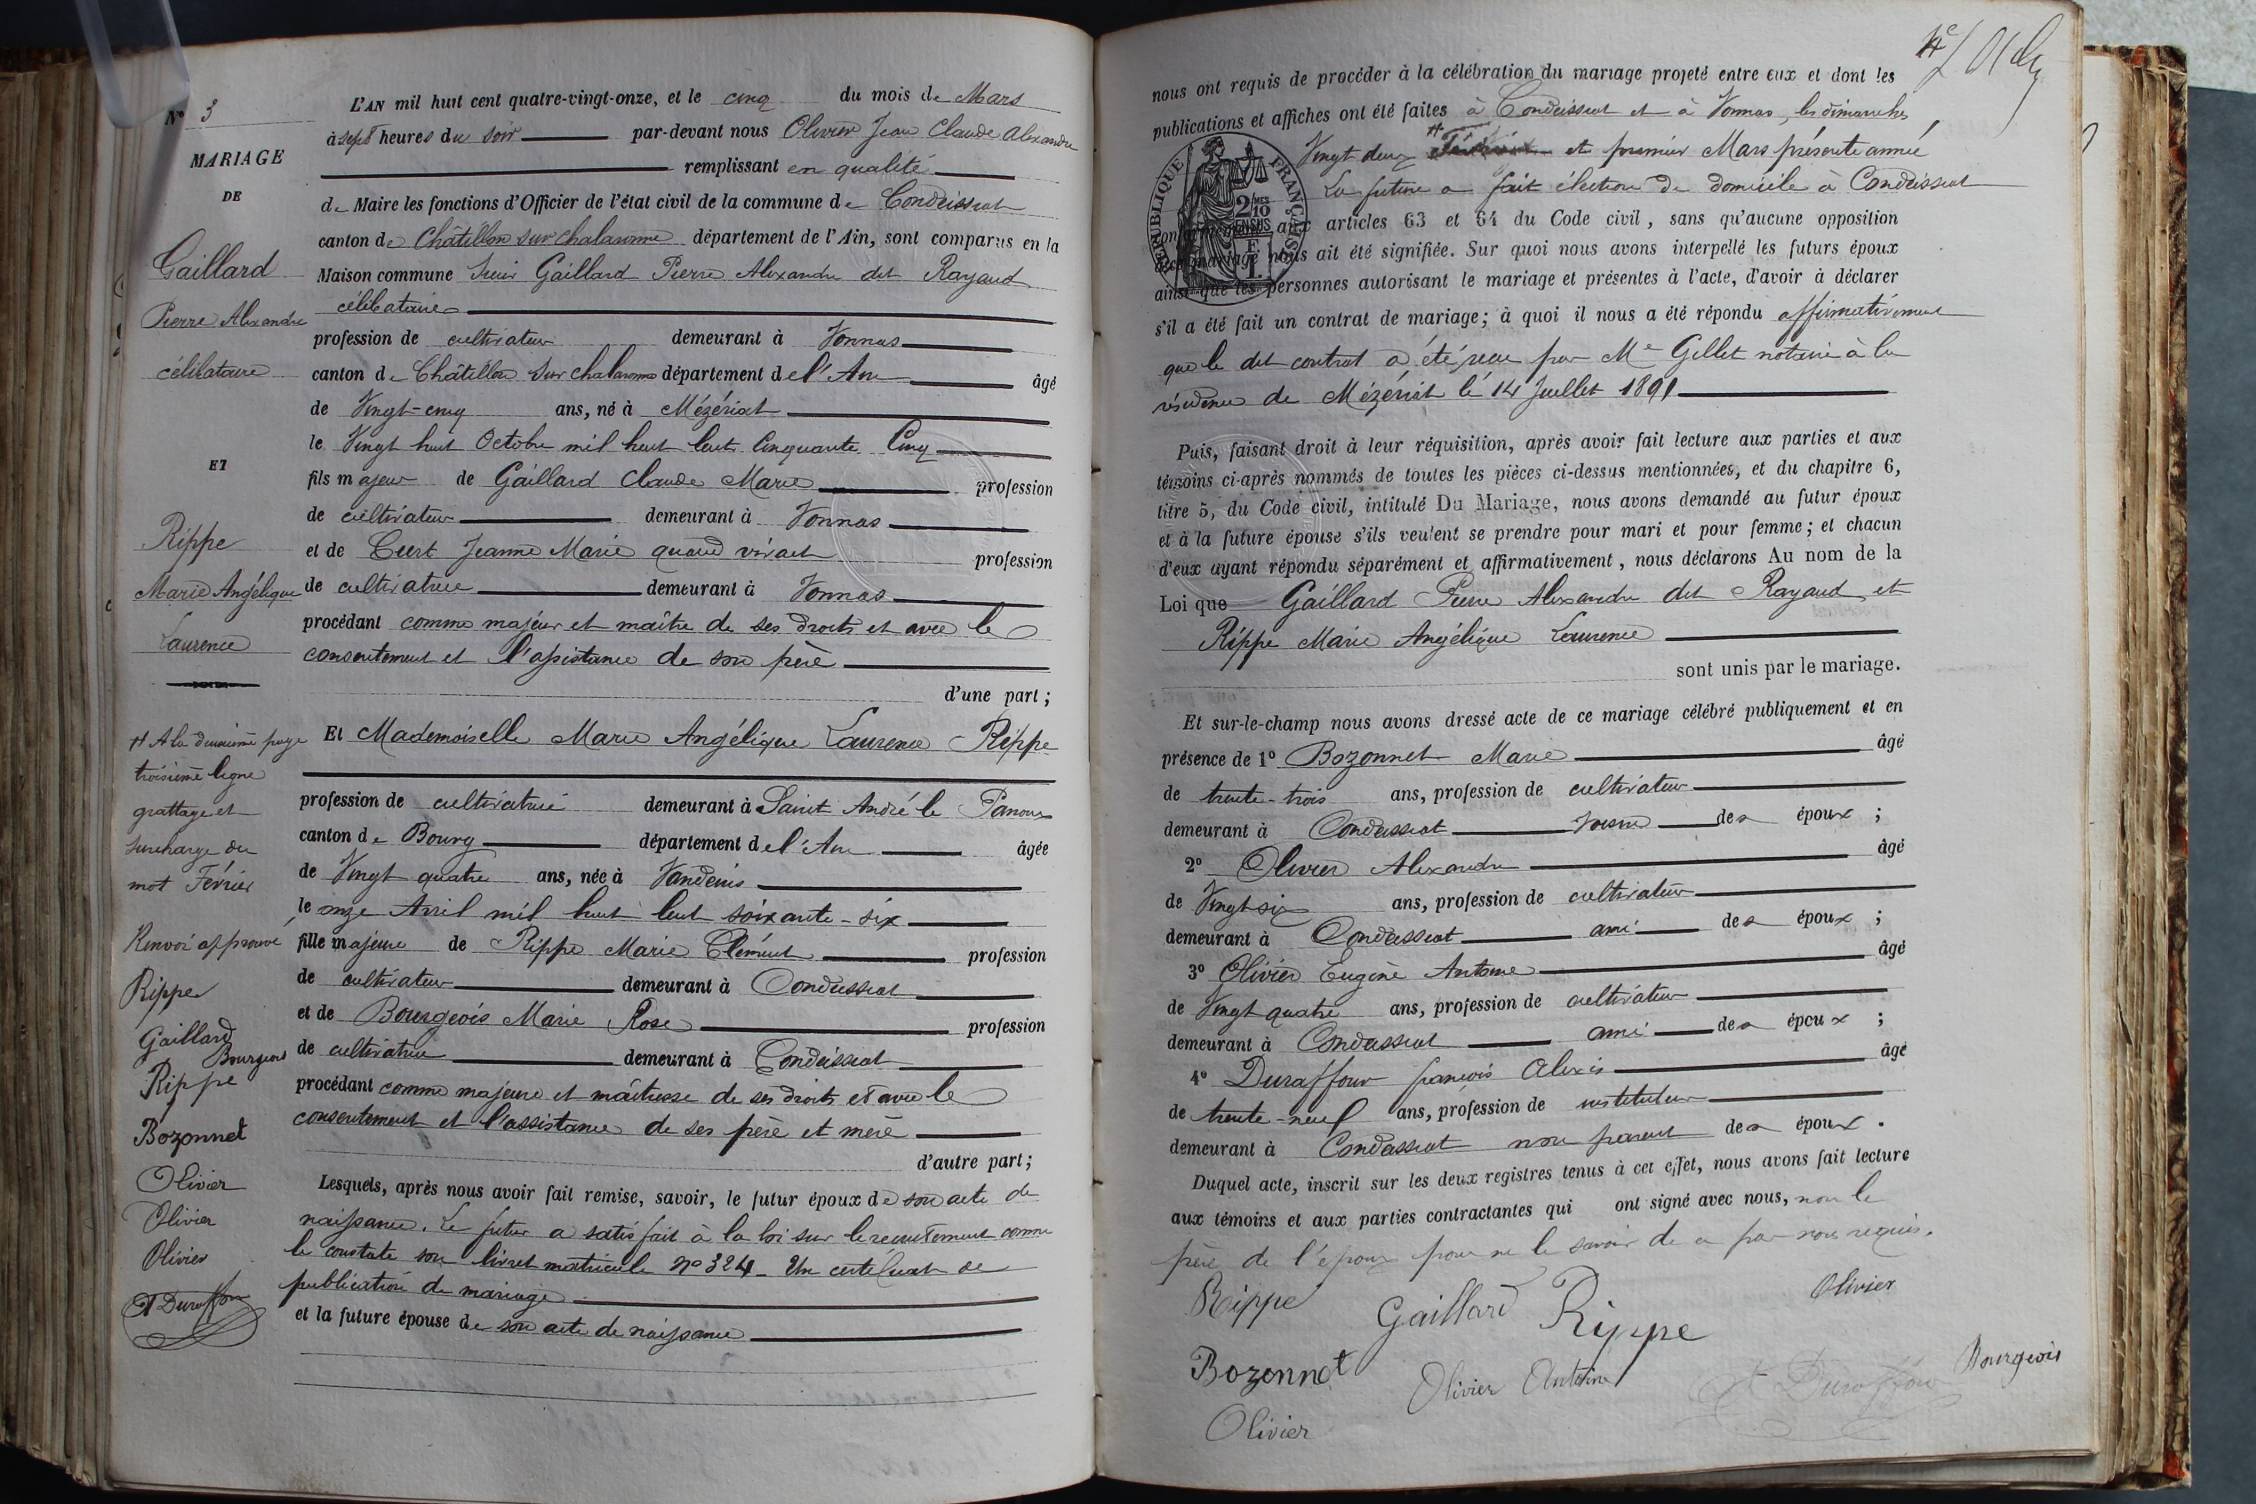 L'AN mil huit cent quatre-vingt-onze, et le cinq du mois de Mars
N° 3
à sept heures du soir par-devant nous Olivier Jean Claude Alexandre
MARIAGE
remplissant en qualité
DE
de Maire les fonctions d'Officier de l'état civil de la commune de Condeissiat
canton de Châtillon sur Chalaronne département de l'Ain, sont comparus en la
Gaillard
Maison commune Gaillard Pierre Alexandre dit Rayaud
célibataire
Pierre Alexandre
profession de cultivateur demeurant à Vonnas
célibataire
canton de Châtillon sur Chalaronne département de l'Ain âgé
de Vingt-cinq ans, né à Mézériat
le Vingt huit Octobre mil huit cent Cinquante Cinq
ET
fils majeur de Gaillard Claude Marie profession
de cultivateur demeurant à Vonnas
Rippe
et de Curt Jeanne Marie quand vivait profession
Marie Angélique
de cultivatrice demeurant à Vonnas
Laurence
procédant comme majeur et maître de ses droits et avec le
consentement et l'assistance de son père
d'une part ;
# A la deuxième page
troisième ligne
grattage et
surcharge du
mot Février
Renvoi approuvé
Rippe
Gaillard
Bourgeois
Rippe
Bozonnet
Olivier
Olivier
Olivier
A Duraffour
Et Mademoiselle Marie Angélique Laurence Rippe
profession de cultivatrice demeurant à Saint André le Panoux
canton de Bourg département de l'Ain âgée
de Vingt quatre ans, née à Vandeins
le onze Avril mil huit cent soixante-six
fille majeure de Rippe Marie Clément profession
de cultivateur demeurant à Condeissiat
et de Bourgeois Marie Rose profession
de cultivatrice demeurant à Condeissiat
procédant comme majeure et maîtresse de ses droits et avec le
consentement et l'assistance de ses père et mère
d'autre part ;
Lesquels, après nous avoir fait remise, savoir, le futur époux de son acte de
naissance. Le futur a satisfait à la loi sur le recrutement comme
le constate son livret matricule N° 324 - Un certificat de
publication de mariage
et la future épouse de son acte de naissance
nous ont requis de procéder à la célébration du mariage projeté entre eux et dont les
publications et affiches ont été faites à Condeissiat et à Vonnas, les dimanches
Vingt deux # Février et premier Mars présente année
La future a fait élection de domicile à Condeissiat
RÉPUBLIQUE FRANÇAISE
2 MES
10 EN SUS
conformément aux articles 63 et 64 du Code civil, sans qu'aucune opposition
mariage nous ait été signifiée. Sur quoi nous avons interpellé les futurs époux
ainsi que les personnes autorisant le mariage et présentes à l'acte, d'avoir à déclarer
s'il a été fait un contrat de mariage ; à quoi il nous a été répondu affirmativement
que le dit contrat a été reçu par Me Gillet notaire à la
résidence de Mézériat le 14 Juillet 1891
Puis, faisant droit à leur réquisition, après avoir fait lecture aux parties et aux
témoins ci-après nommés de toutes les pièces ci-dessus mentionnées, et du chapitre 6,
titre 5, du Code civil, intitulé Du Mariage, nous avons demandé au futur époux
et à la future épouse s'ils veulent se prendre pour mari et pour femme ; et chacun
d'eux ayant répondu séparément et affirmativement, nous déclarons Au nom de la
Loi que Gaillard Pierre Alexandre dit Rayaud et
Rippe Marie Angélique Laurence
sont unis par le mariage.
Et sur-le-champ nous avons dressé acte de ce mariage célébré publiquement et en
présence de 1° Bozonnet Marie âgé
de trente-trois ans, profession de cultivateur
demeurant à Condeissiat voisin des époux ;
2° Olivier Alexandre âgé
de Vingt six ans, profession de cultivateur
demeurant à Condeissiat ami des époux ;
3° Olivier Eugène Antoine âgé
de Vingt quatre ans, profession de cultivateur
demeurant à Condeissiat ami des époux ;
4° Duraffour françois Alexis âgé
de trente-neuf ans, profession de instituteur
demeurant à Condeissiat non parent des époux.
Duquel acte, inscrit sur les deux registres tenus à cet effet, nous avons fait lecture
aux témoins et aux parties contractantes qui ont signé avec nous, non le
père de l'époux pour ne le savoir de ce par nous requis.
Rippe Gaillard Rippe Olivier
Bozonnet Olivier Antoine A Duraffour Bourgeois
Olivier